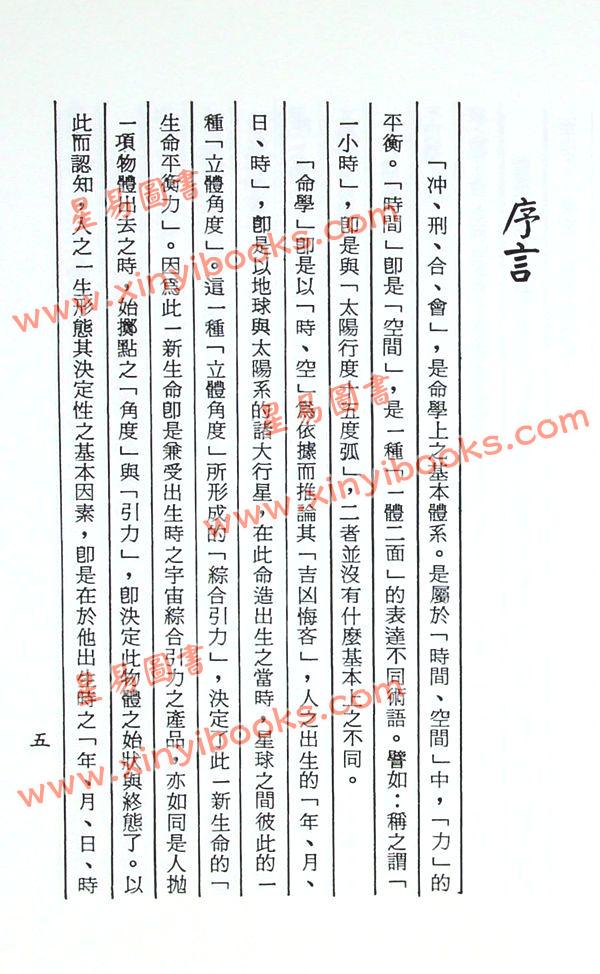 序言
「冲、刑、合、會」,是命學上之基本體系。是屬於「時間、空間」中,「力」的
平衡。「時間」卽是「空間」,是一種「一體二面」的表達不同術語。譬如:稱之謂「
一小時」,卽是與「太陽行度十五度弧」,二者並沒有什麼基本上之不同。
「命學」卽是以「時、空」爲依據而推論其「吉凶悔吝」,人之出生的「年、月、
日、時」,卽是以地球與太陽系的諸大行星,在此命造出生之當時,星球之間彼此的一
種「立體角度」。這一種「立體角度」所形成的「綜合引力」,決定了此一新生命的「
生命平衡力」。因爲此一新生命卽是兼受出生時之宇宙綜合引力之產品,亦如同是人拋
一項物體出去之時,始擲點之「角度」與「引力」,卽決定此物體之始狀與終態了。以
此而認知,人之一生形態其決定性之基本因素,卽是在於他出生時之「年、月、日、時
五
星易圖書
www.xinyibooks.com
星易圖書
www.xinyibooks.com
星易圖書
www.xinyibooks.com